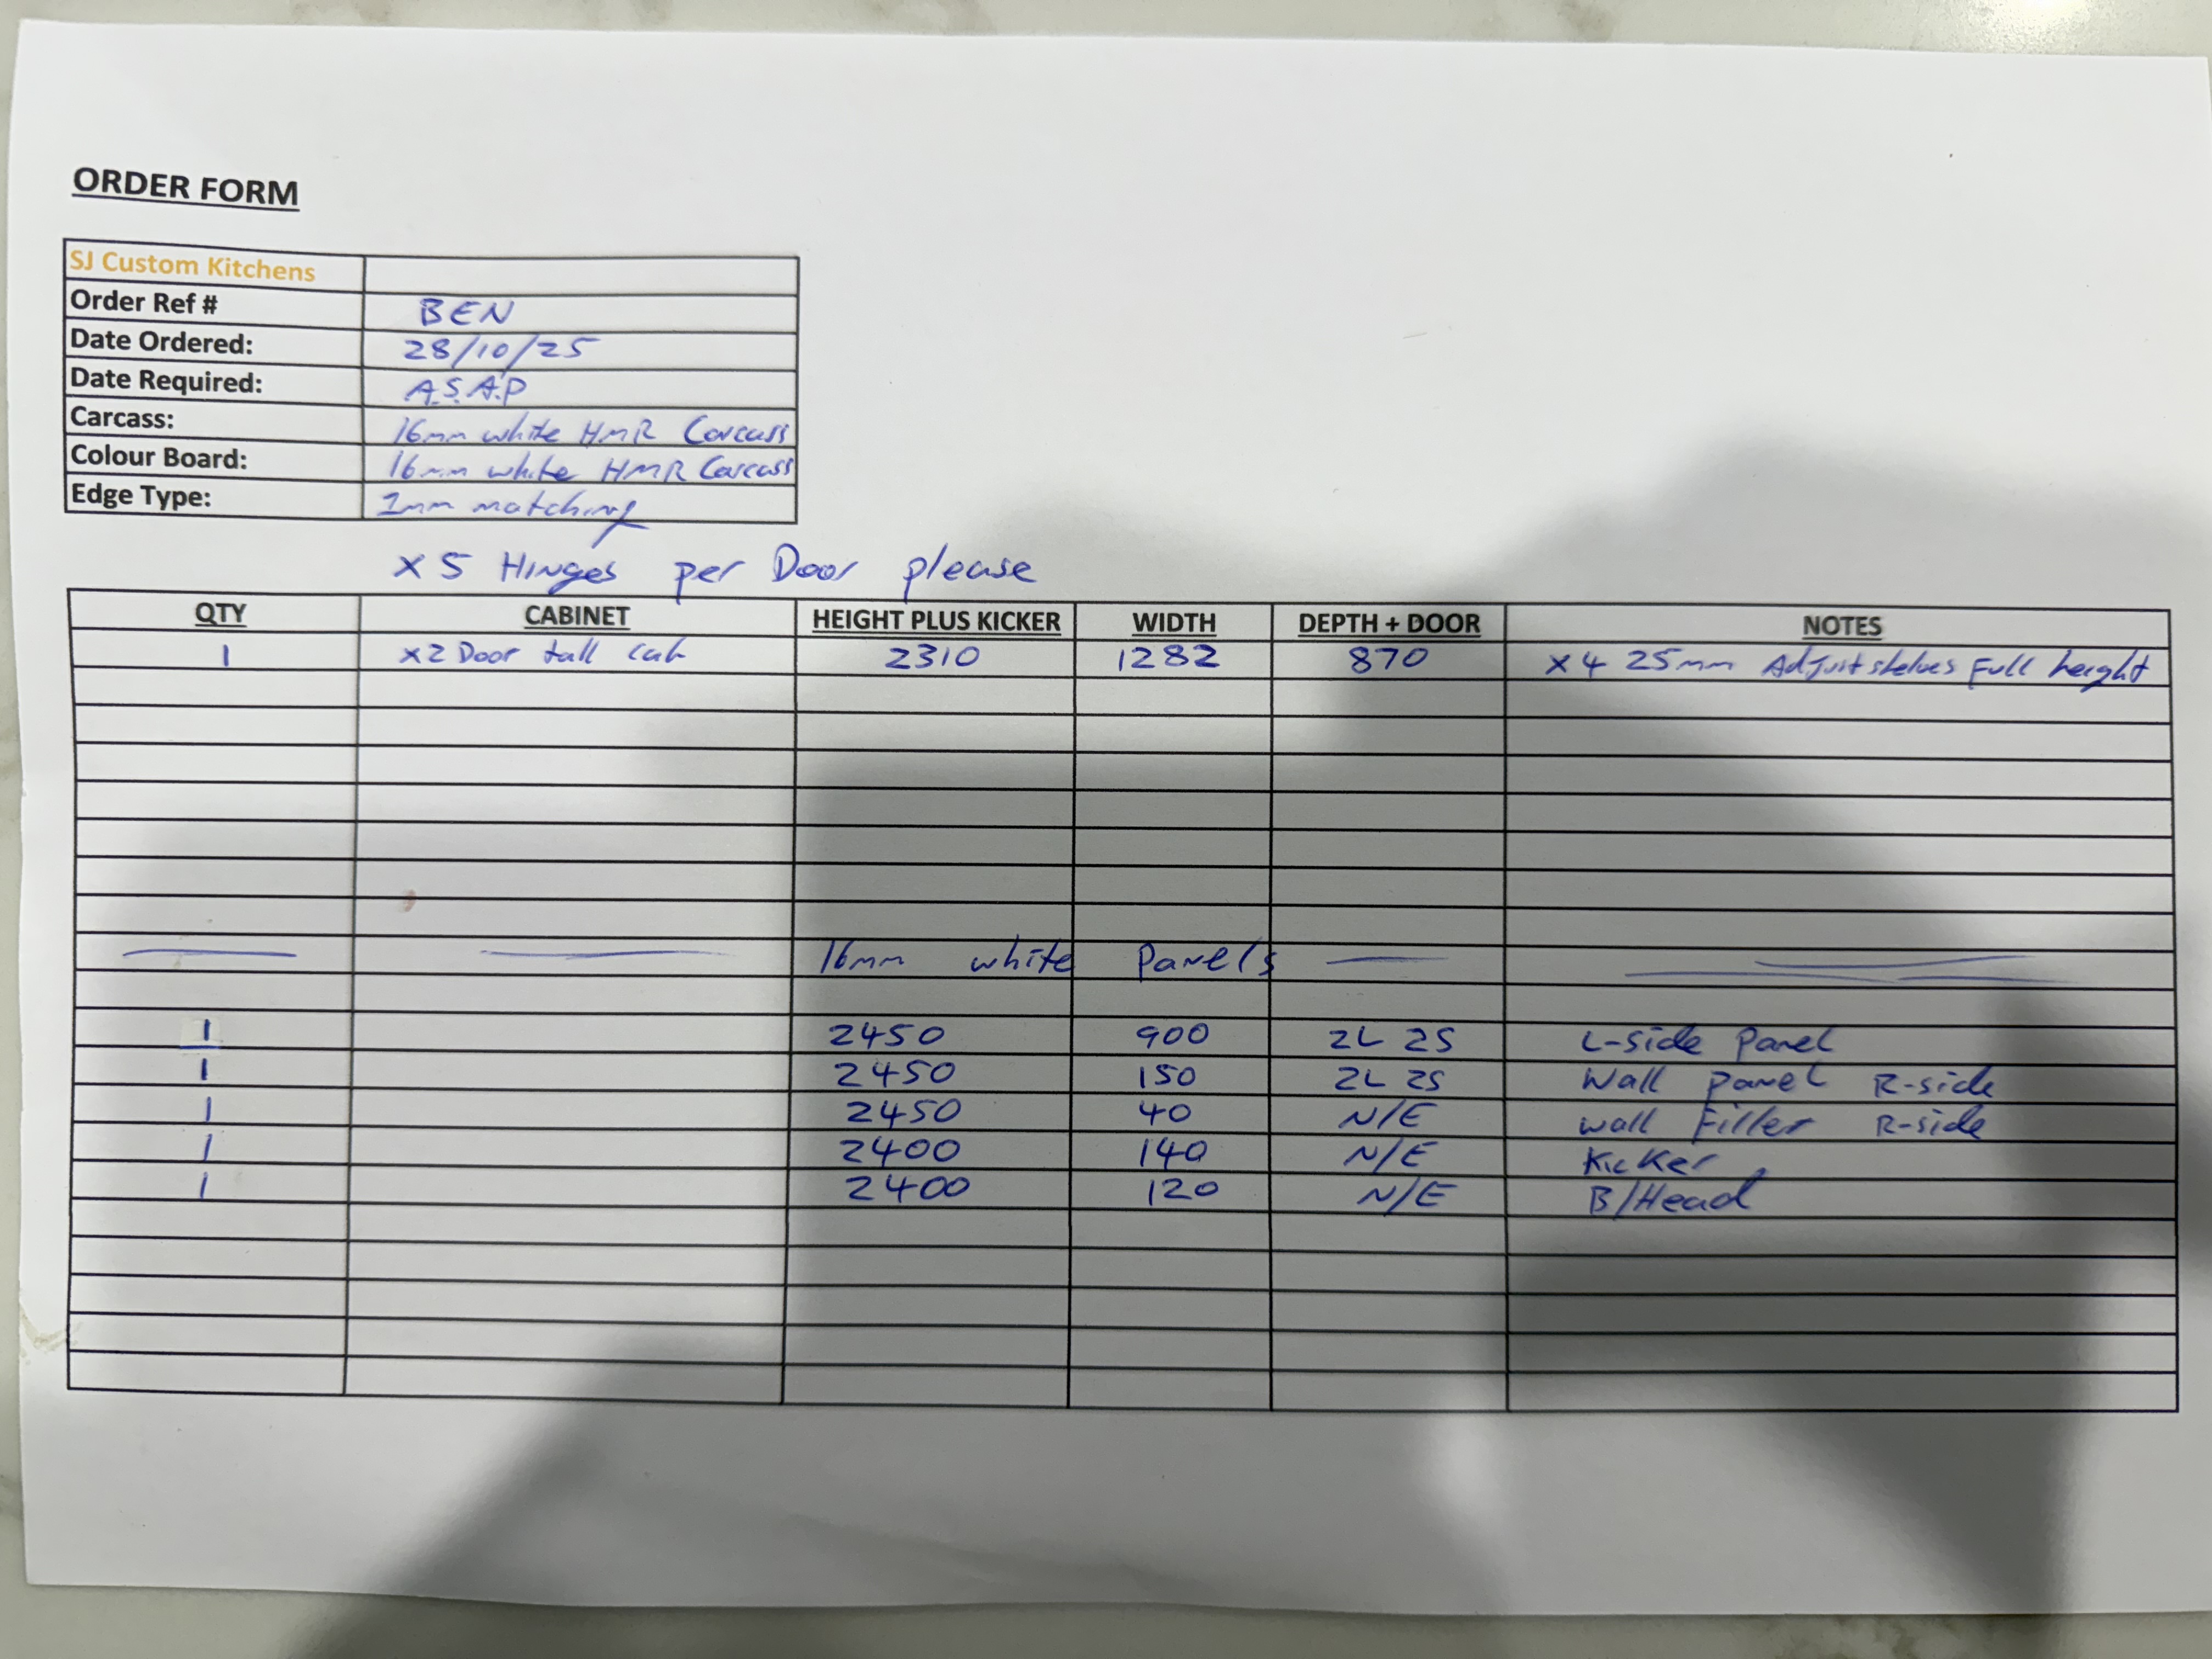 ORDER FORM
SJ Custom Kitchens
Order Ref # BEN
Date Ordered: 28/10/25
Date Required: A.S.A.P
Carcass: 16mm white HMR Carcass
Colour Board: 16mm white HMR Carcass
Edge Type: 1mm matching
x 5 Hinges per Door please
QTY CABINET HEIGHT PLUS KICKER WIDTH DEPTH + DOOR NOTES
1 x2 Door tall cab 2310 1282 870 x 4 25mm Adjust shelves Full height
16mm white Panels
1 2450 900 2L 2S L-side Panel
1 2450 150 2L 2S Wall Panel R-side
1 2450 40 N/E Wall Filler R-side
1 2400 140 N/E Kicker
1 2400 120 N/E B/Head